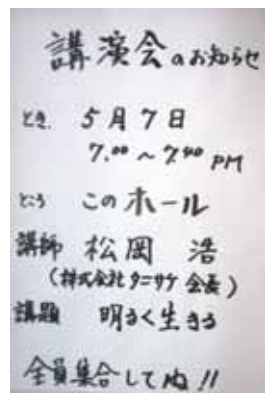 講演会のお知らせ
とき. 5月7日
7.00～7.40 PM
ところ このホール
講師 松岡 浩
(株式会社タニサケ 会長)
講題 明るく生きる
全員集合してね!!